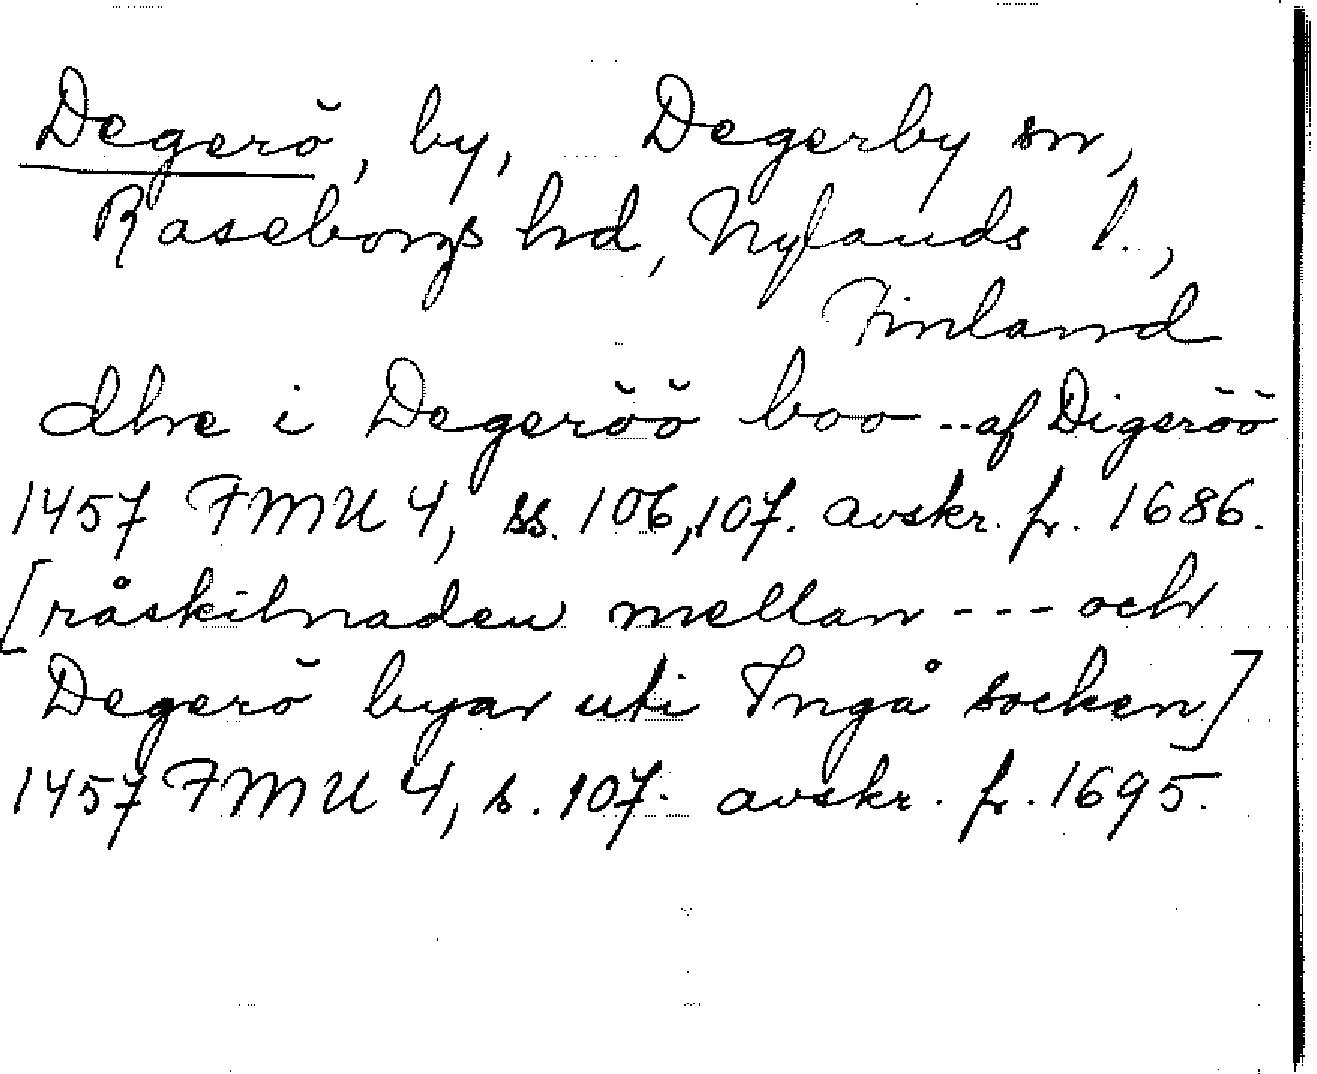 Degerö, by, Degerby sn,
Raseborgs hd, Nylands l.,
Finland
dhe i Degeröö boo -- af Digeröö
1457 FMU 4, ss. 106, 107. avskr. fr. 1686.
[råskilnaden mellan --- och
Degerö byar uti Ingå socken]
1457 FMU 4, s. 107. avskr. fr. 1695.